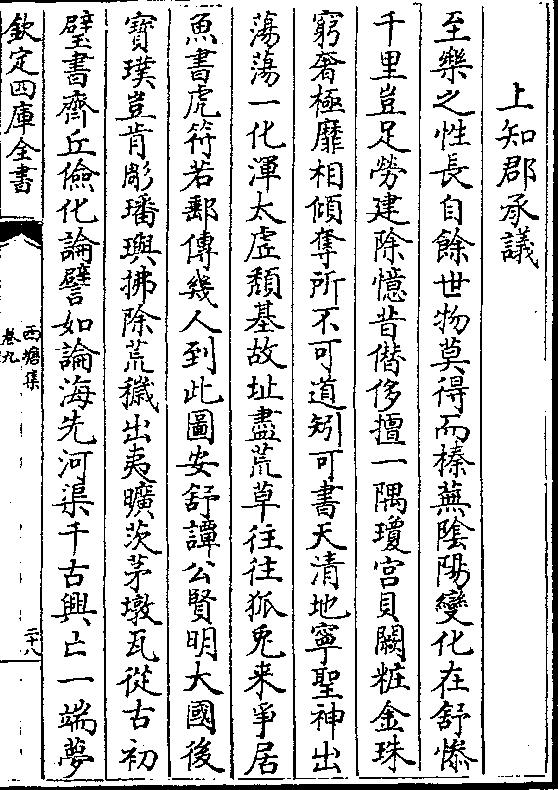 上知郡承議
至樂之性長自餘世物莫得而榛蕪隂陽變化在舒慘
千里豈足勞建除憶昔僭侈擅一隅瓊宫貝闕粧金珠
窮奢極靡相傾奪所不可道矧可書天清地寧聖神出
蕩蕩一化渾太虚頽基故址盡荒草往往狐兎来爭居
魚書虎符若郵傳幾人到此圖安舒譚公賢明大國後
寳璞豈肯彫璠璵拂除荒穢出夷曠茨茅墩瓦從古初
壁書齊丘儉化論譬如論海先河渠千古興亡一端夢
欽定四庫全書
西塘集
卷九
二十八